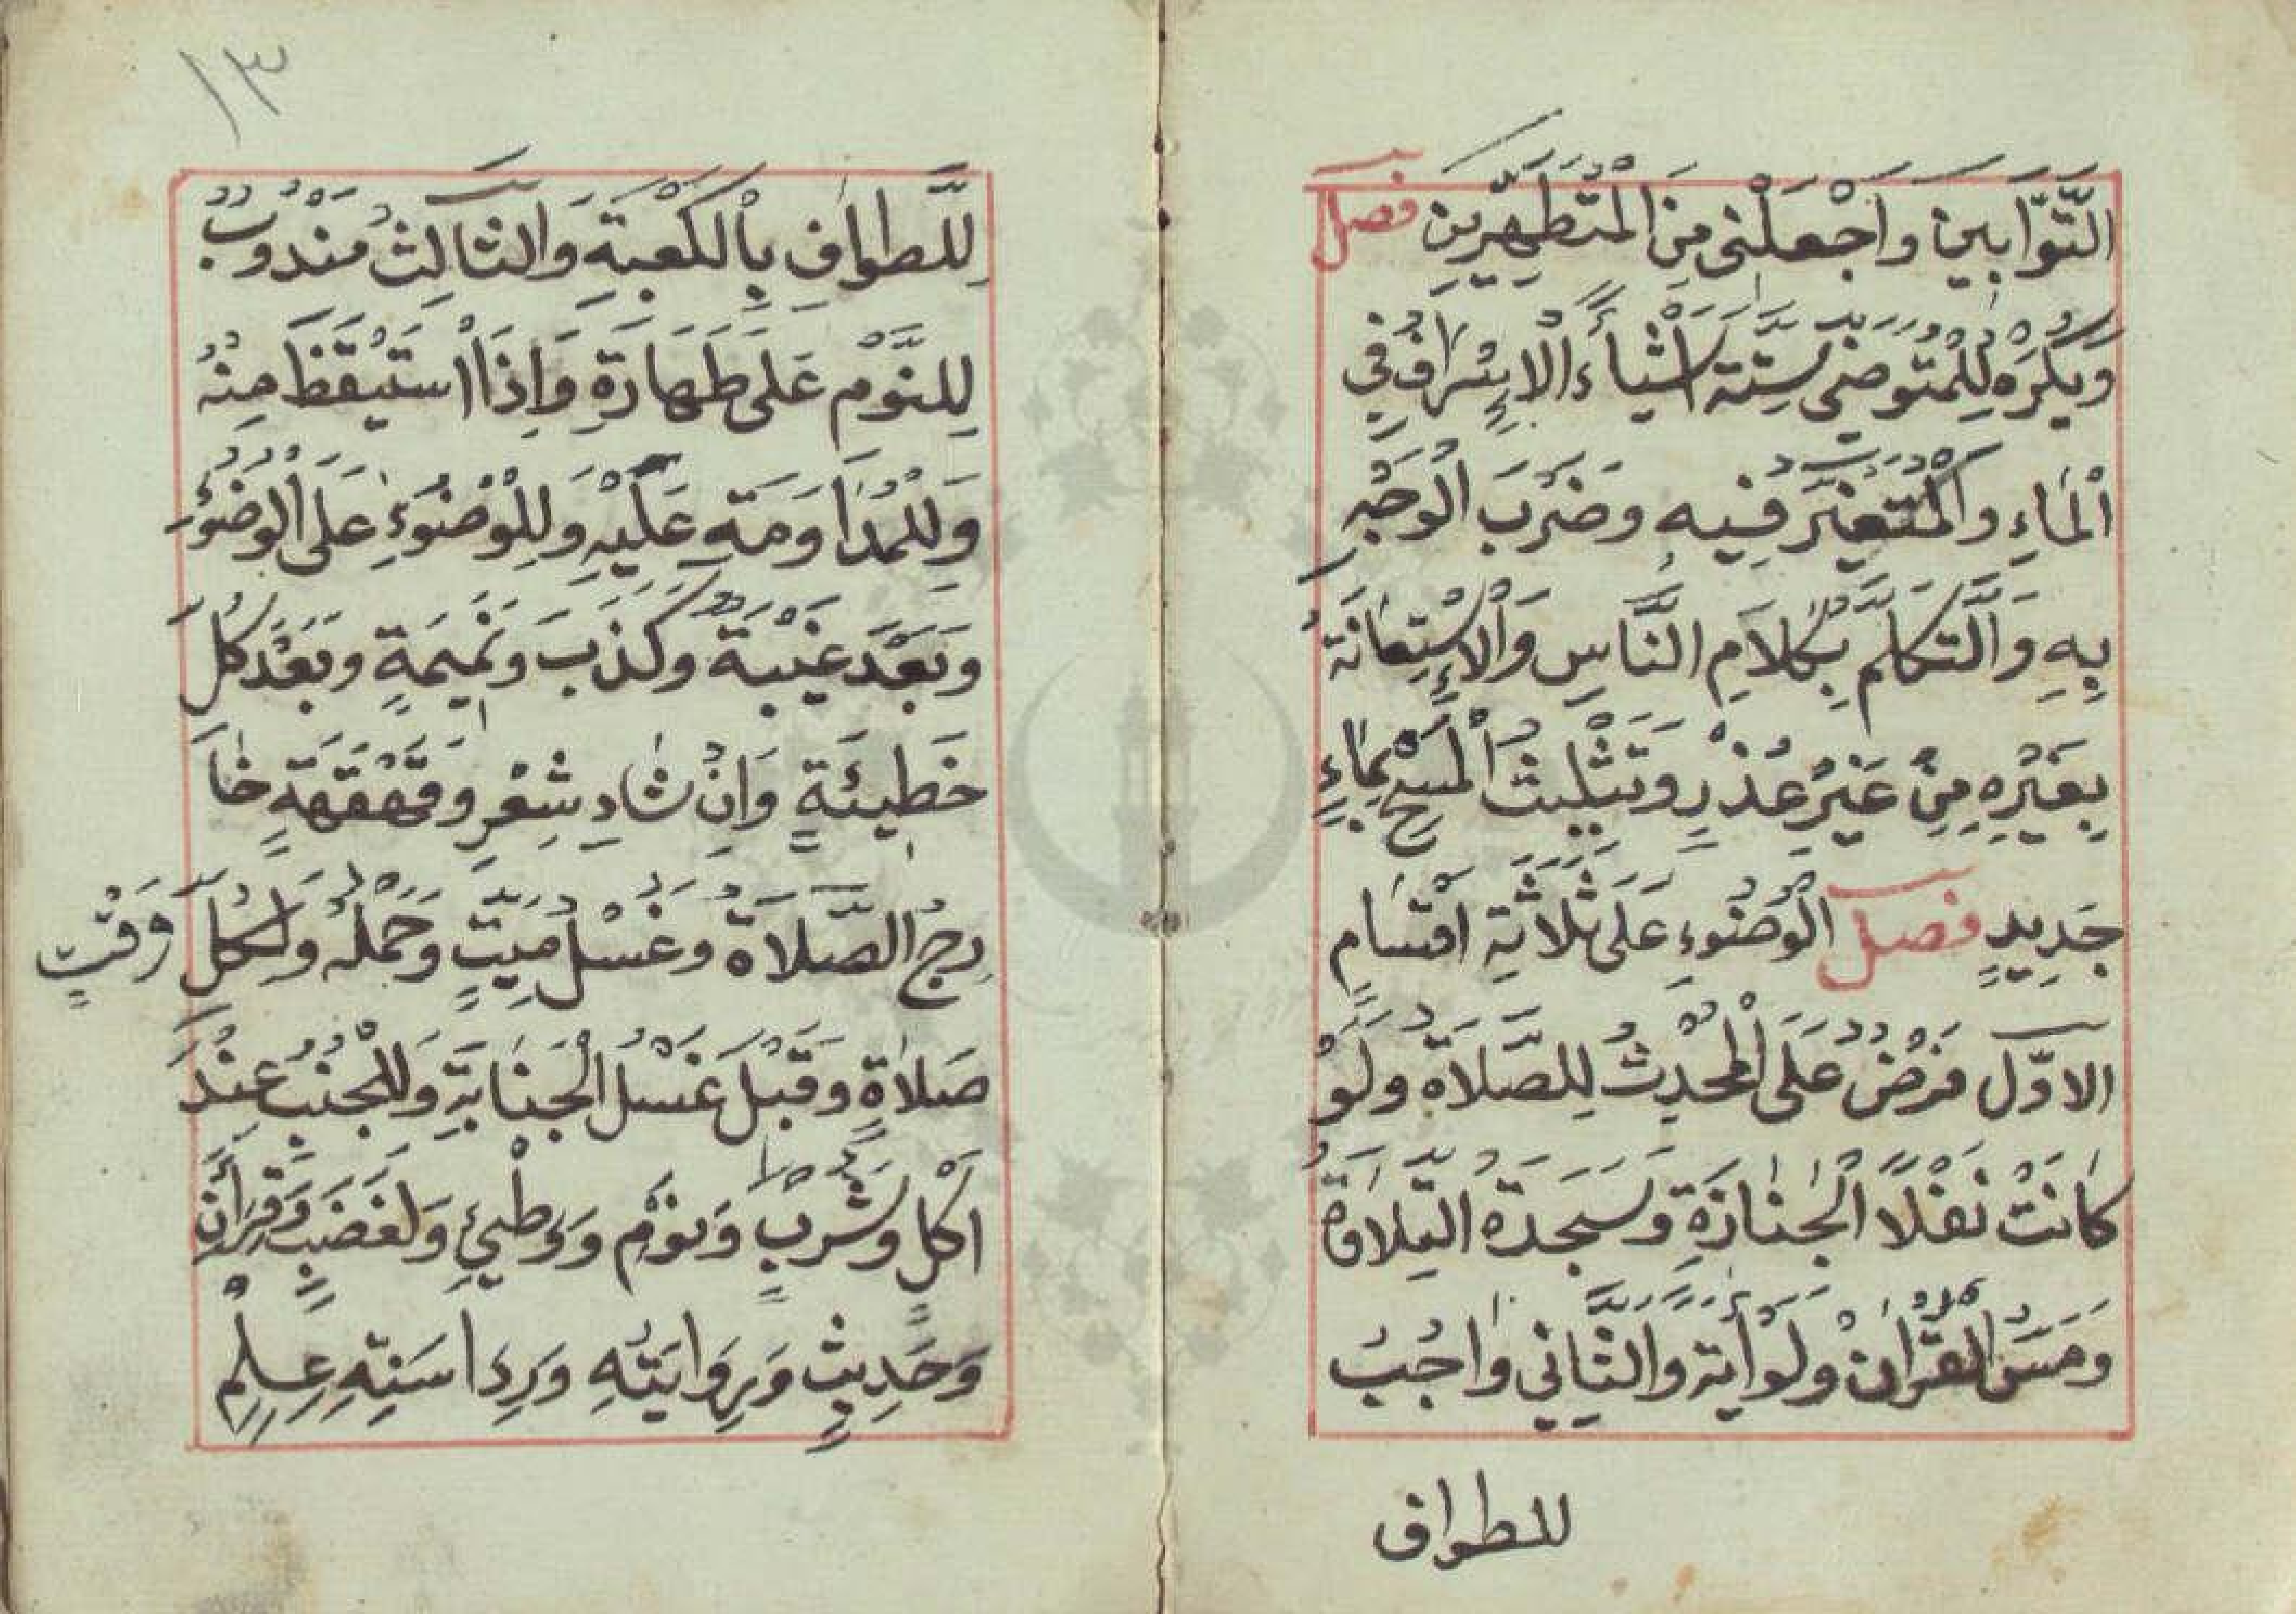 التَّوَّابِينَ وَاجْعَلْنِي مِنَ الْمُتَطَهِّرِينَ فصل
وَيُكْرَهُ لِلْمُتَوَضِّي سِتَّةُ اَشْيَاءَ الْاِسْرَافُ فِي
الْمَاءِ وَالْمُتَغَيِّرُ فِيهِ وَضَرْبُ الْوَجْهِ
بِهِ وَالتَّكَلُّمُ بِكَلَامِ النَّاسِ وَالْاِسْتِعَانَةُ
بِغَيْرِهِ مِنْ غَيْرِ عُذْرٍ وَتَثْلِيثُ الْمَسْحِ بِمَاءٍ
جَدِيدٍ فصل الْوُضُوءِ عَلَى ثَلَاثَةِ اَقْسَامٍ
الاوّل فَرْضٌ عَلَى الْمُحْدِثِ لِلصَّلَاةِ وَلَوْ
كَانَتْ نَفْلًا الْجَنَازَةِ وَسَجَدَةِ التِّلَاوَةِ
وَمَسِّ الْقُرْاٰنِ وَلَوْ اٰيَة وَالثَّانِي وَاجِبُ
للطواف
١٣
لِلطَّوَافِ بِالْكَعْبَةِ وَالثَّالِثُ مَنْدُوبٌ
لِلنَّوْمِ عَلَى طَهَارَةٍ وَاِذَا اسْتَيْقَظَ مِنْهُ
وَلِلْمُدَاوَمَةِ عَلَيْهِ وَلِلْوُضُوءِ عَلَى الْوُضُوءِ
وَبَعْدَ غِيْبَةٍ وَكَذِبَ وَنَمِيمَةٍ وَبَعْدَ كُلِّ
خَطِيئَةٍ وَاِنْشَادِ شِعْرٍ وَقَهْقَهَةٍ خَا
رِجَ الصَّلَاةِ وَغَسْلِ مَيِّتٍ وَحَمْلِهِ وَلِكُلِّ وَقْتِ
صَلَاةٍ وَقَبْلَ غَسْلِ الْجَنَابَةِ وَلِلْجُنُبِ عِنْدَ
اَكْلٍ وَشُرْبٍ وَنَوْمٍ وَوَطْيءٍ وَلِغَضَبٍ وَقِرَأٰنٍ
وَحَدِيثٍ وَرِوَايَتِهِ وَرِدَاسَتِهِ عِلْمٍ